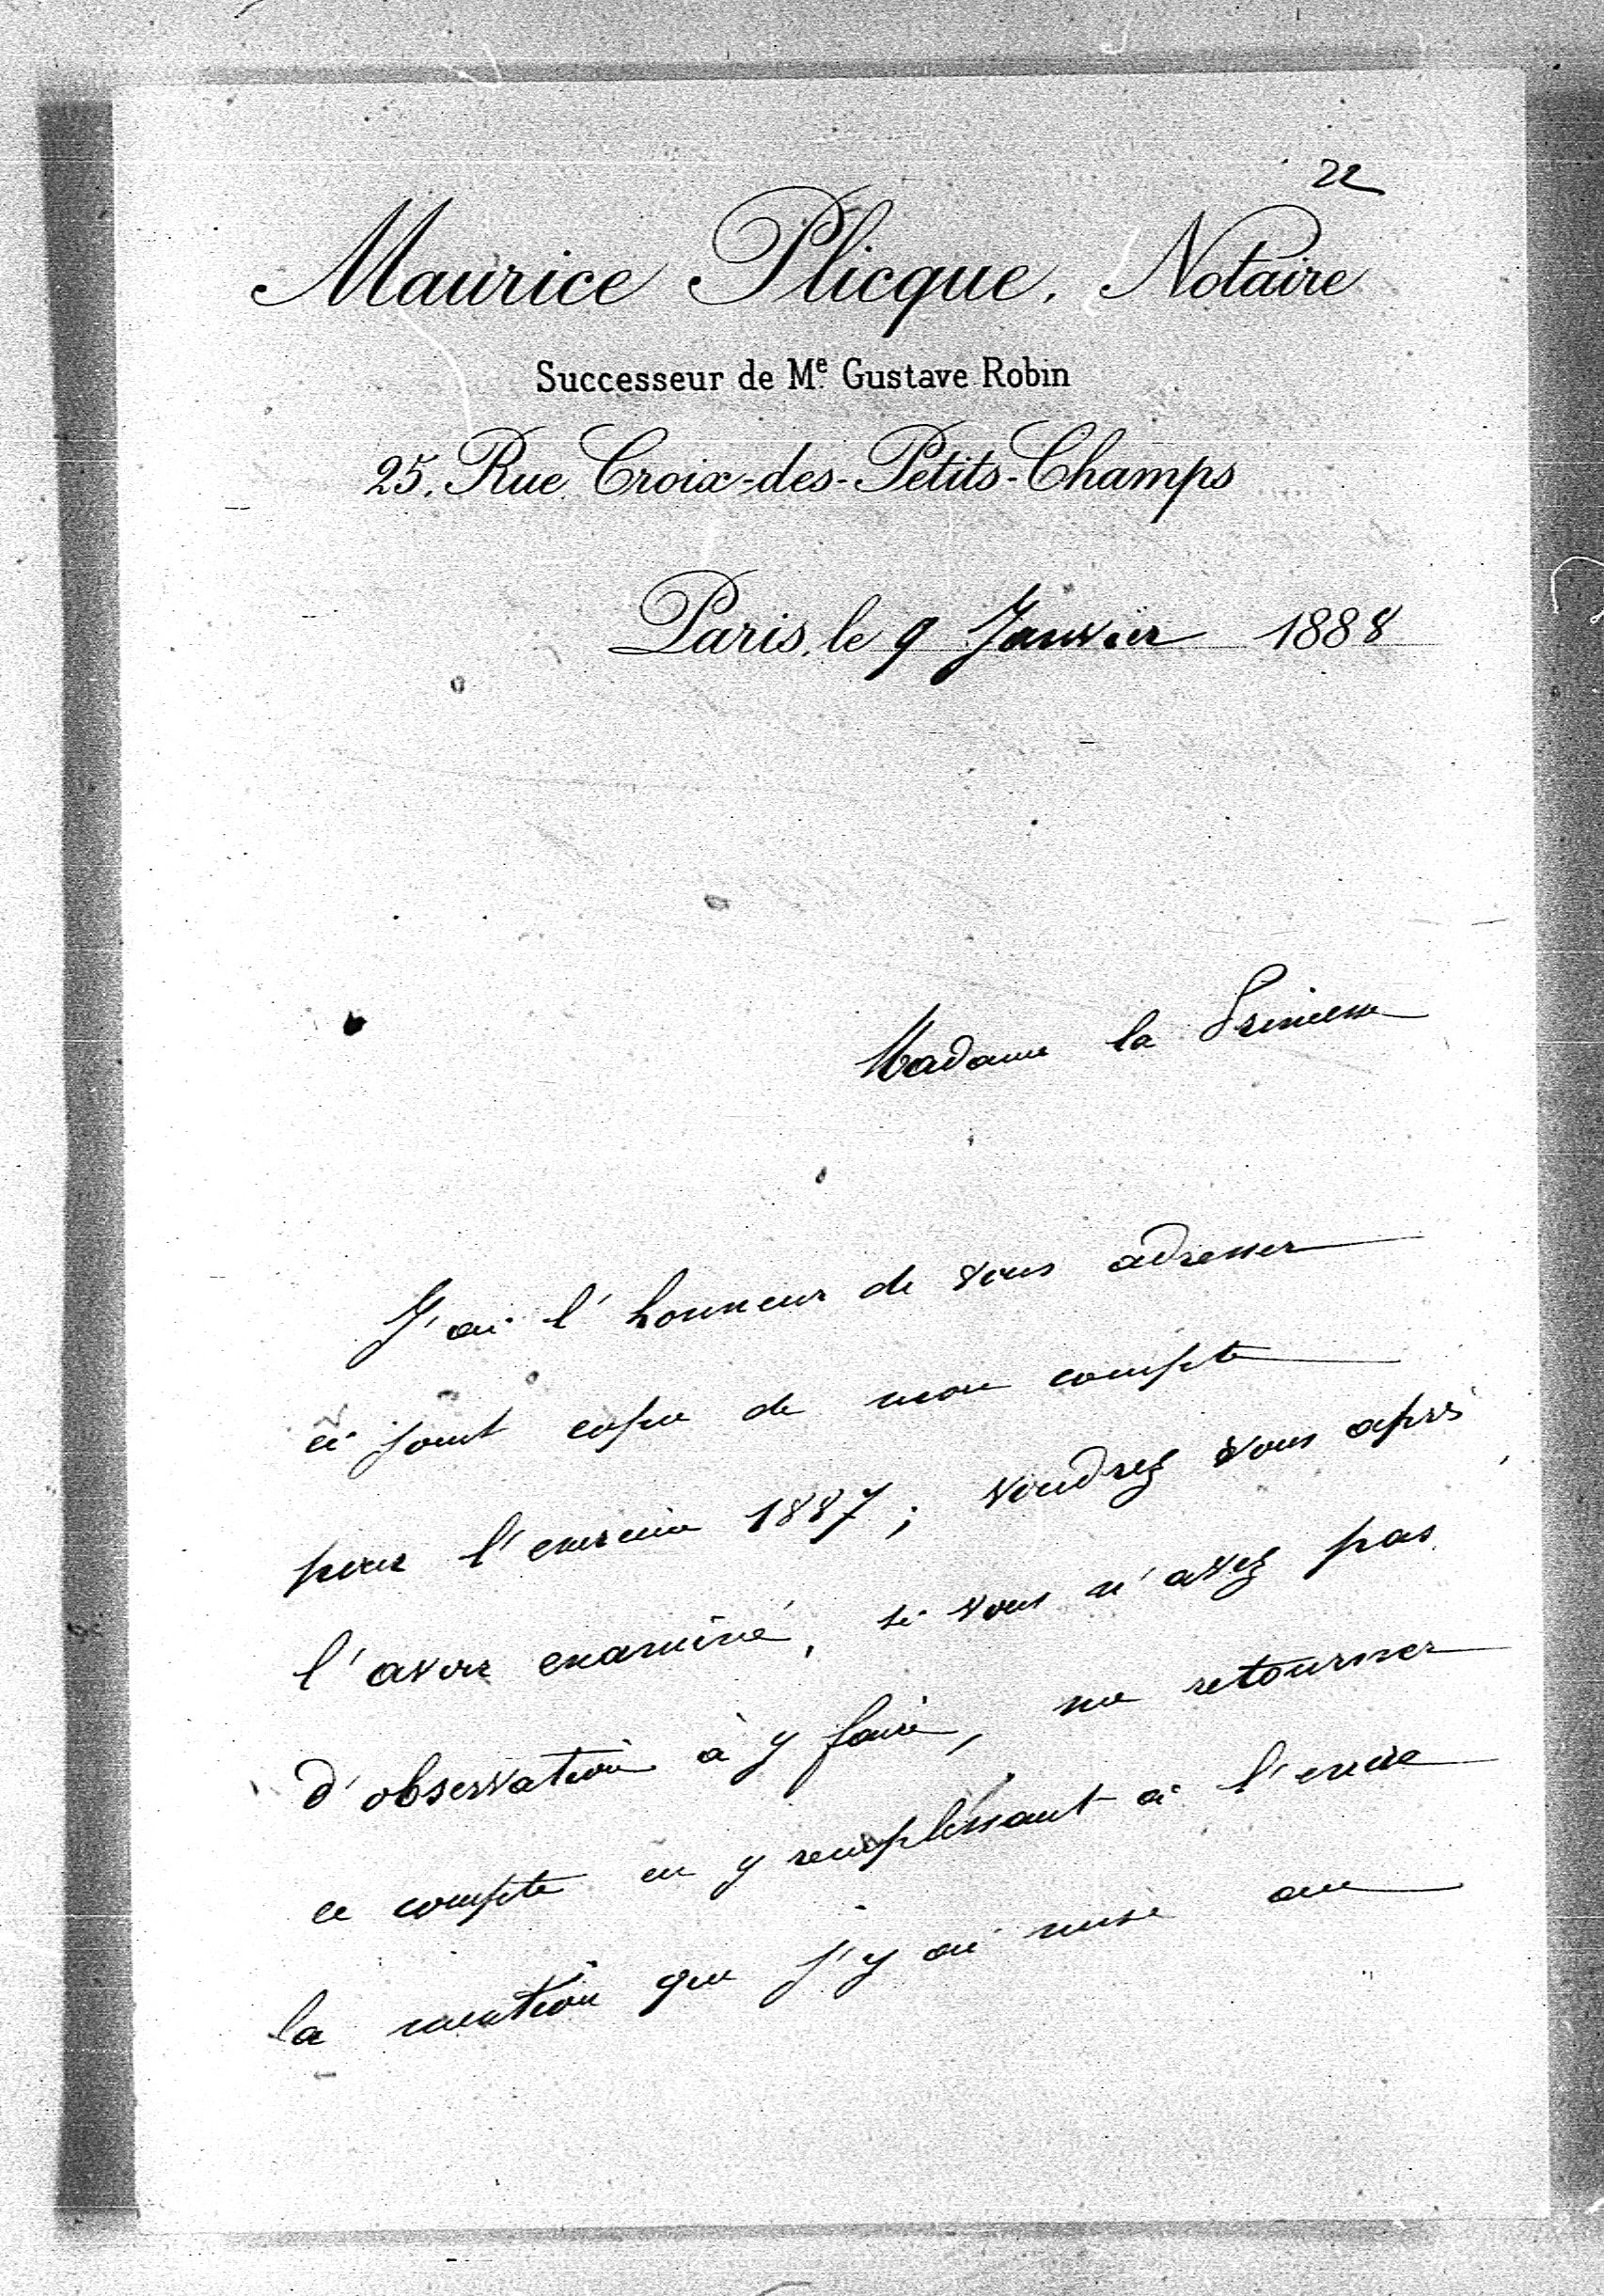 22
Maurice Plicque, Notaire
Successeur de Me. Gustave Robin
25, Rue Croix-des-Petits-Champs
Paris, le 9 Janvier 1888
Madame la Princesse
J'ai l'honneur de vous adresser
ci joint copie de mon compte
pour l'exercice 1887; voudrez vous après
l'avoir examiné, si vous n'avez pas
d'observation à y faire, me retourner
ce compte en y remplissant à l'encre
la mention que j'y ai mise au